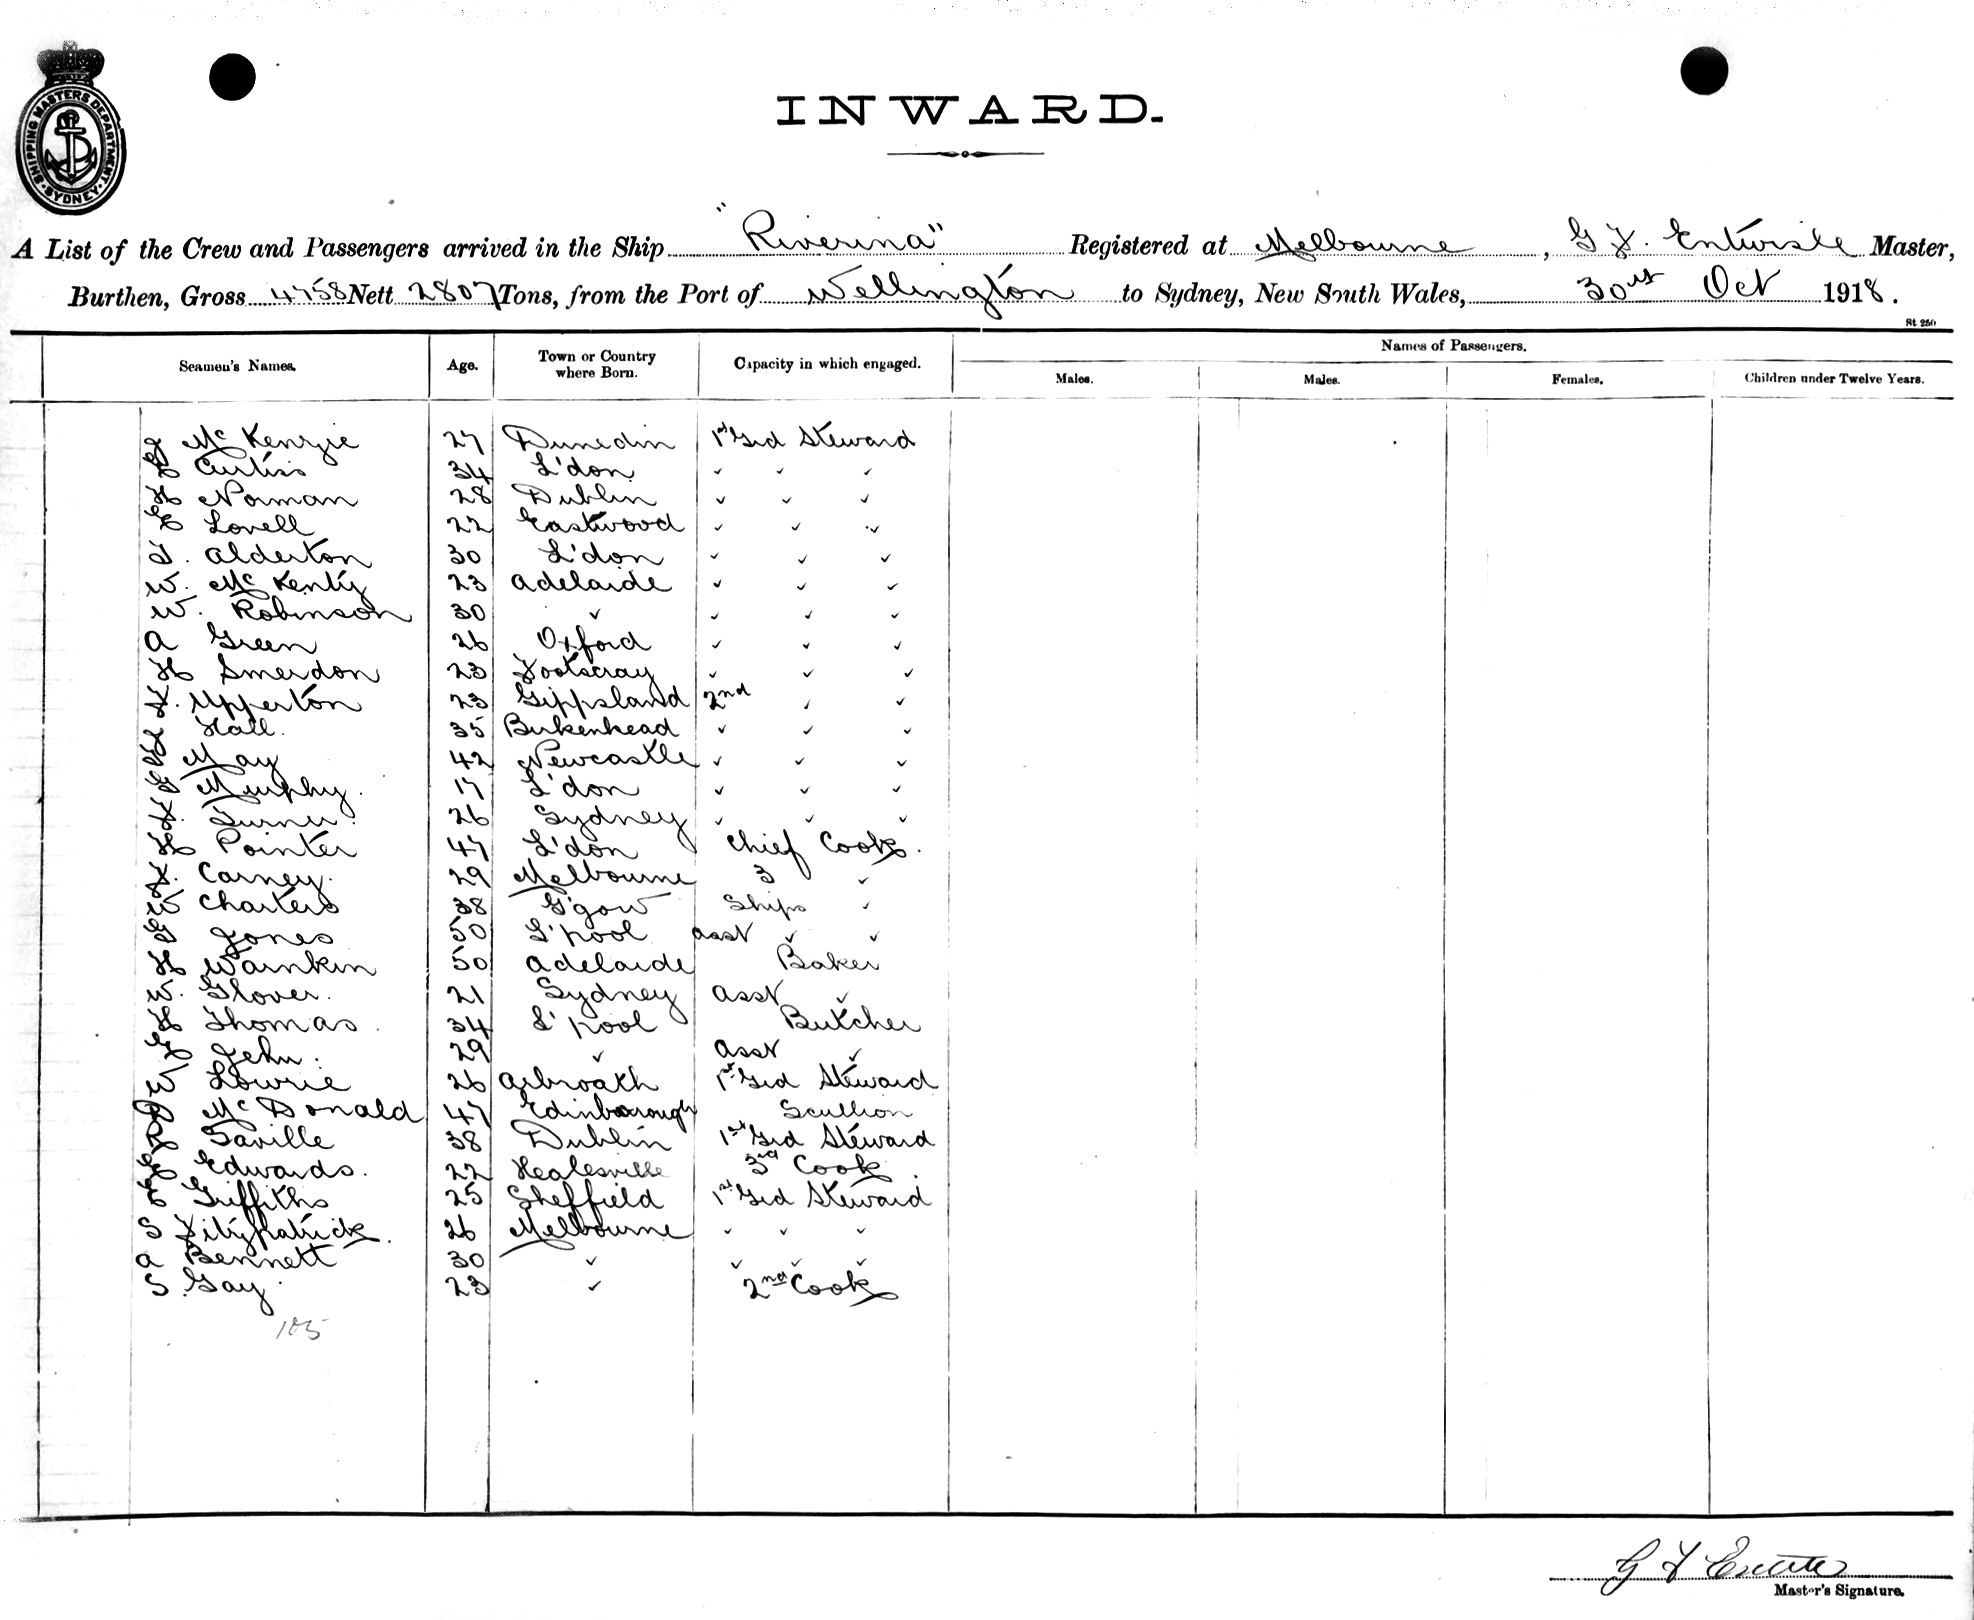 SHIPPING MASTERS DEPARTMENT · SYDNEY ·
INWARD.
A List of the Crew and Passengers arrived in the Ship "Riverina" Registered at Melbourne, G F. Entwisle Master,
Burthen, Gross 4758 Nett 2807 Tons, from the Port of Wellington to Sydney, New South Wales, 30st Oct 1918.
St 250
Seamen's Names. Age. Town or Country where Born. Capacity in which engaged. Names of Passengers.
Males. Males. Females. Children under Twelve Years.
J McKenzie 27 Dunedin 1st Grd Steward
Curtiss 34 L'don " " "
H Norman 28 Dublin " " "
Lovell 22 Eastwood " " "
T. Alderton 30 L'don " " "
W. McKenty 23 Adelaide " " "
W. Robinson 30 " " " "
A Green 26 Oxford " " "
H Smerdon 23 Footscray " " "
Upperton 23 Gippsland 2nd " "
Hall. 35 Birkenhead " " "
May 42 Newcastle " " "
G Murphy. 17 L'don " " "
Turner. 26 Sydney " " "
H Pointer 47 L'don Chief Cook.
Carney. 29 Melbourne 3 "
W Charters 38 G'gow Ships "
G Jones 50 L'pool Asst " "
H Warnken 50 Adelaide Baker
W. Glover. 21 Sydney Asst "
H Thomas. 34 L'pool Butcher
John. 29 " Asst "
W Lowrie 26 Arbroath 1st Grd Steward
McDonald 47 Edinborough Scullion
Saville 38 Dublin 1st Grd Steward
Edwards. 22 Healesville 3rd Cook.
Griffiths 25 Sheffield 1st Grd Steward
S Fitzpatrick. 26 Melbourne " " "
A Bennett 30 " " " "
S. Gay. 23 " 2nd Cook
105
G F Entwisle
Master's Signature.